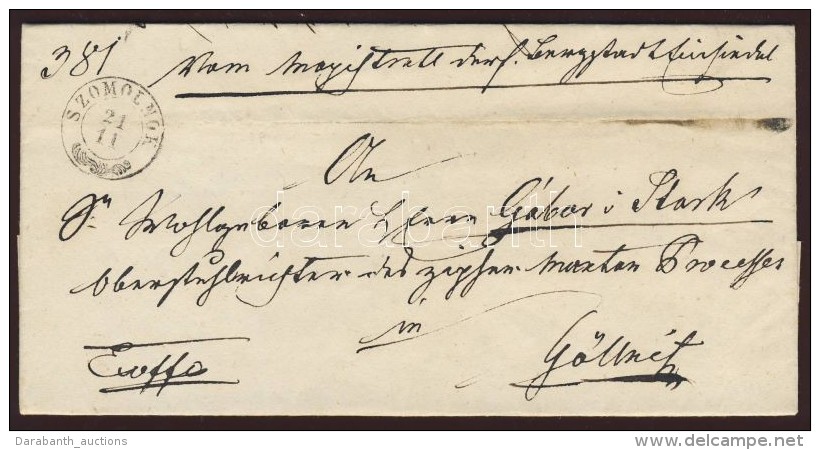 381
Vom Magistrate der k. Bergstadt Einsiedel
SZOMOLNOK
21
11
An
Sr Wohlgeboren Herrn Gábor v Stark
Oberstuhlrichter des zipser Processes
in
Exoffo
Göllnitz
darabanth
Darabanth_auctions
www.delcampe.net